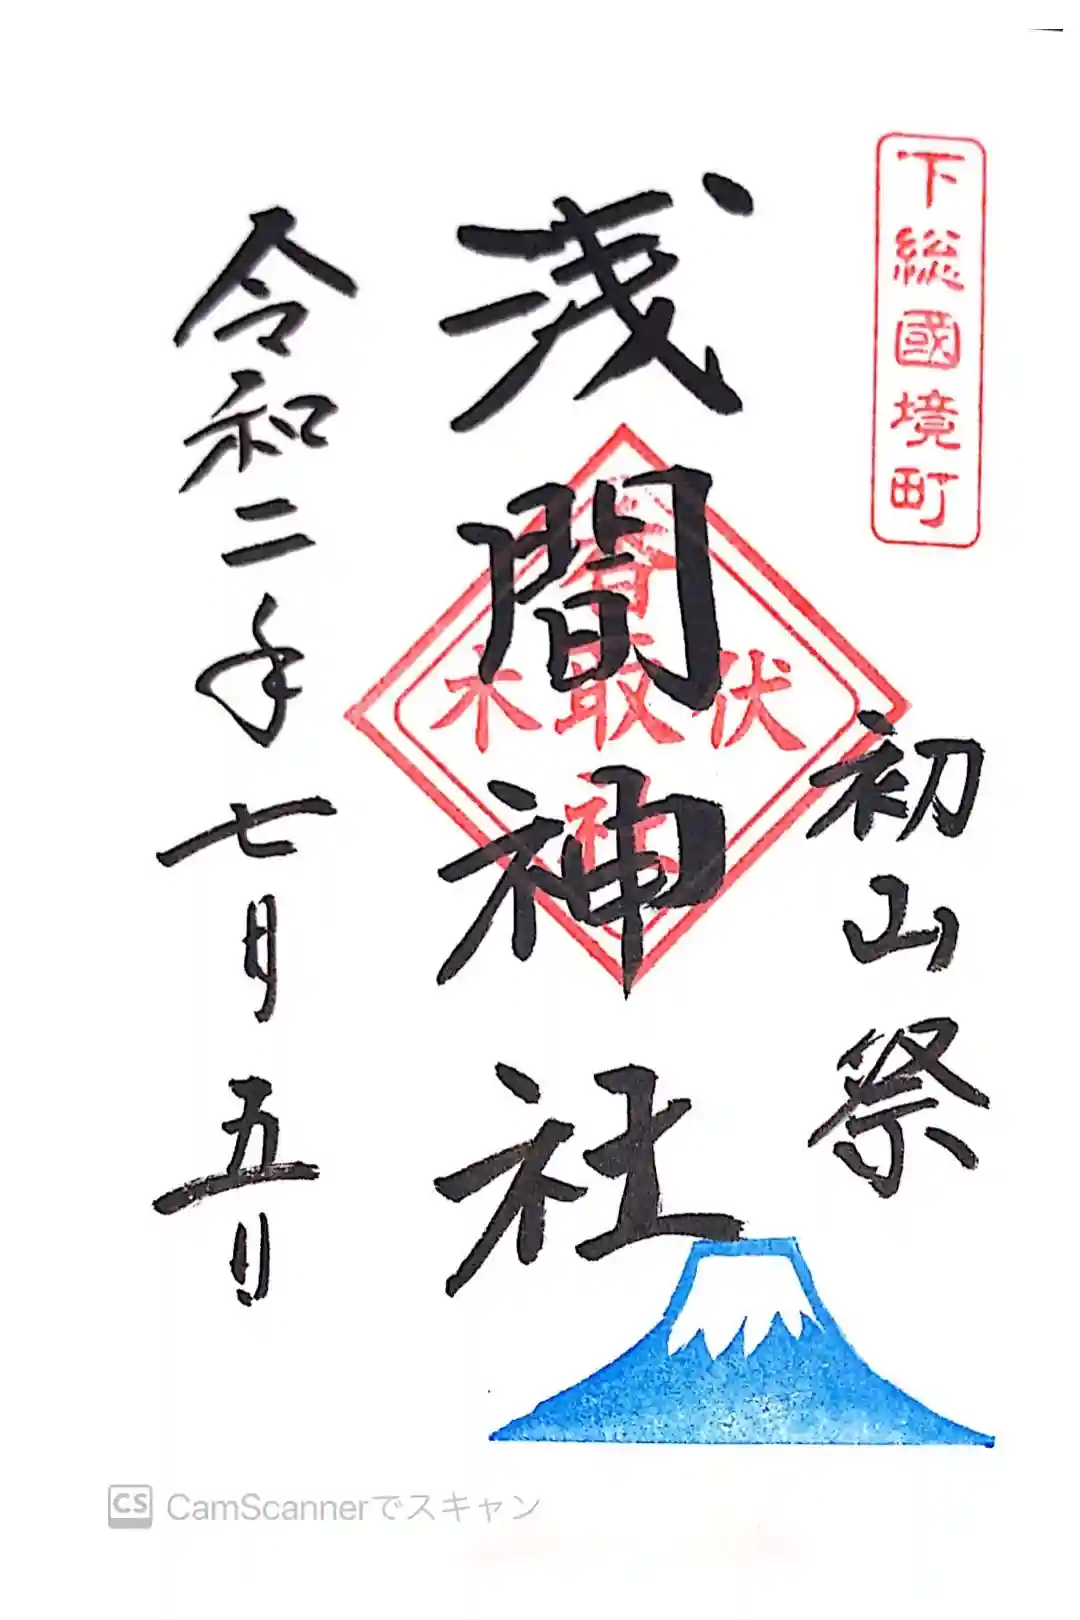 下総國境町
初山祭
浅間神社
伏木
香取
社
令和二年七月五日
CS CamScannerでスキャン